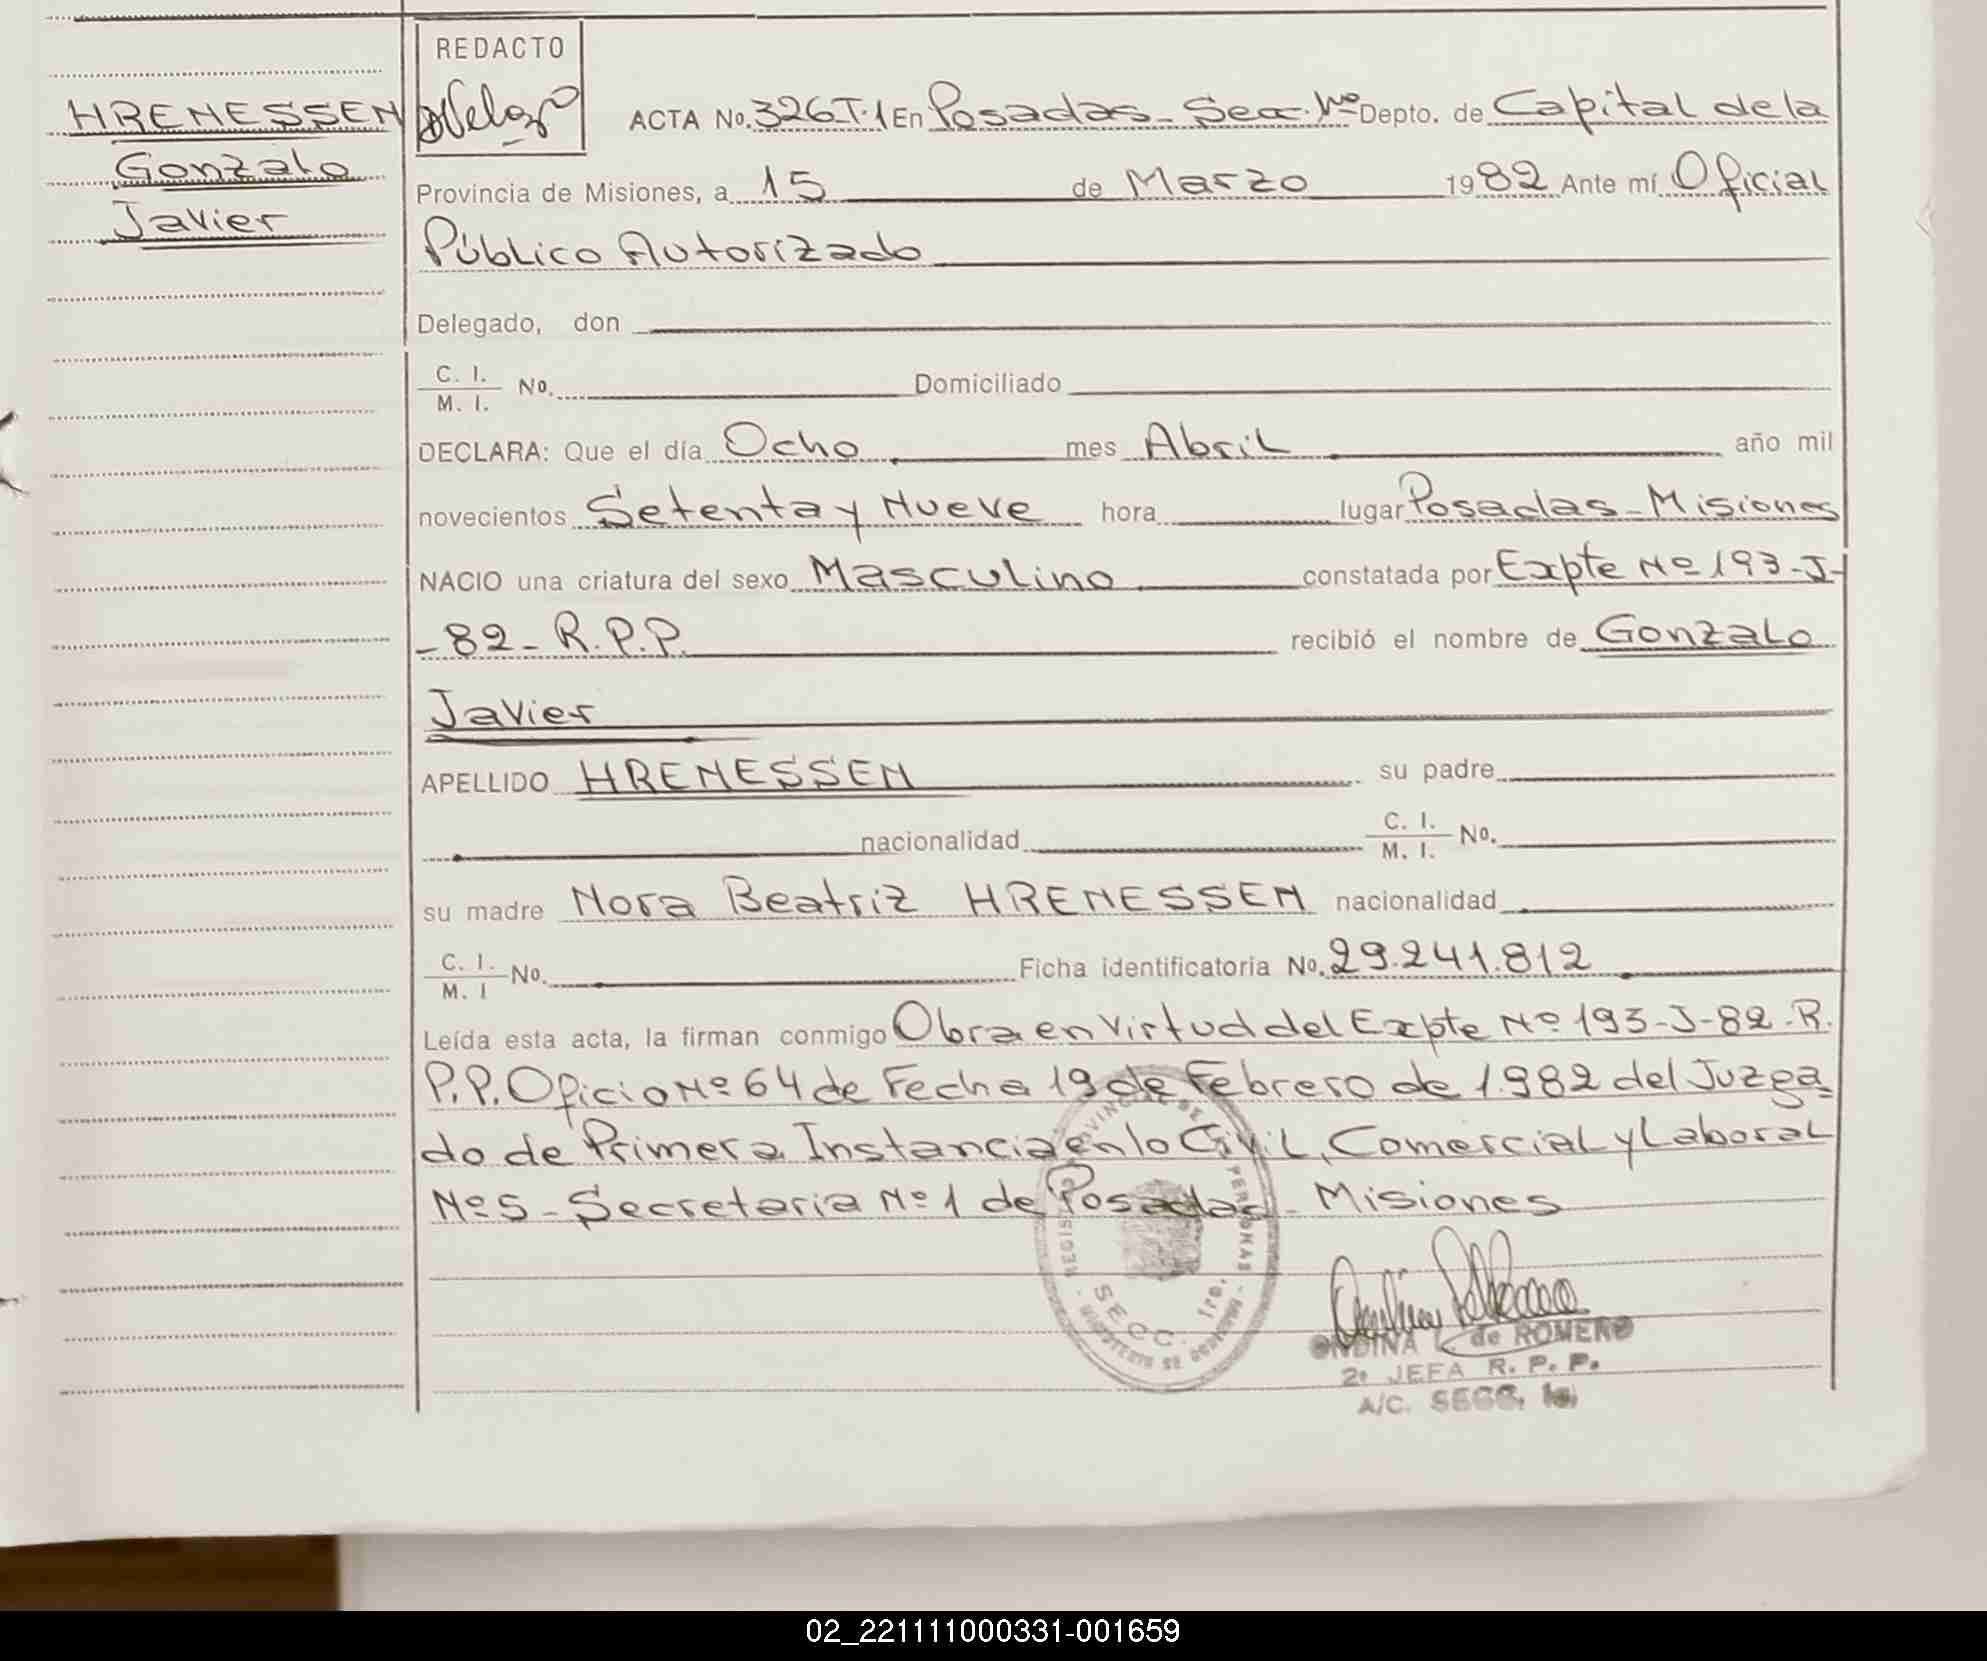 REDACTO
HRENESSEN
Gonzalo
Javier
ACTA No. 326 T.1 En Posadas - Secc. 1ª Depto. de Capital de la
Provincia de Misiones, a 15 de Marzo 1982 Ante mí Oficial
Público Autorizado
Delegado, don
C. I.
M. I. No. Domiciliado
DECLARA: Que el día Ocho mes Abril año mil
novecientos Setenta y Nueve hora lugar Posadas - Misiones
NACIO una criatura del sexo Masculino constatada por Expte Nº 193-J-
-82- R.P.P. recibió el nombre de Gonzalo
Javier
APELLIDO HRENESSEN su padre
nacionalidad C. I.
M. I. No.
su madre Nora Beatriz HRENESSEN nacionalidad
C. I.
M. I No. Ficha identificatoria No. 29.241.812
Leída esta acta, la firman conmigo Obra en Virtud del Expte Nº 193-J-82-R.
P.P. Oficio Nº 64 de Fecha 19 de Febrero de 1.982 del Juzga-
do de Primera Instancia en lo Civil, Comercial y Laboral
Nº 5 - Secretaria Nº 1 de Posadas - Misiones
SECC. 1ra.
ONDINA de ROMERO
2ª JEFA R. P. P.
A/C. SECC. 1a.
02_221111000331-001659